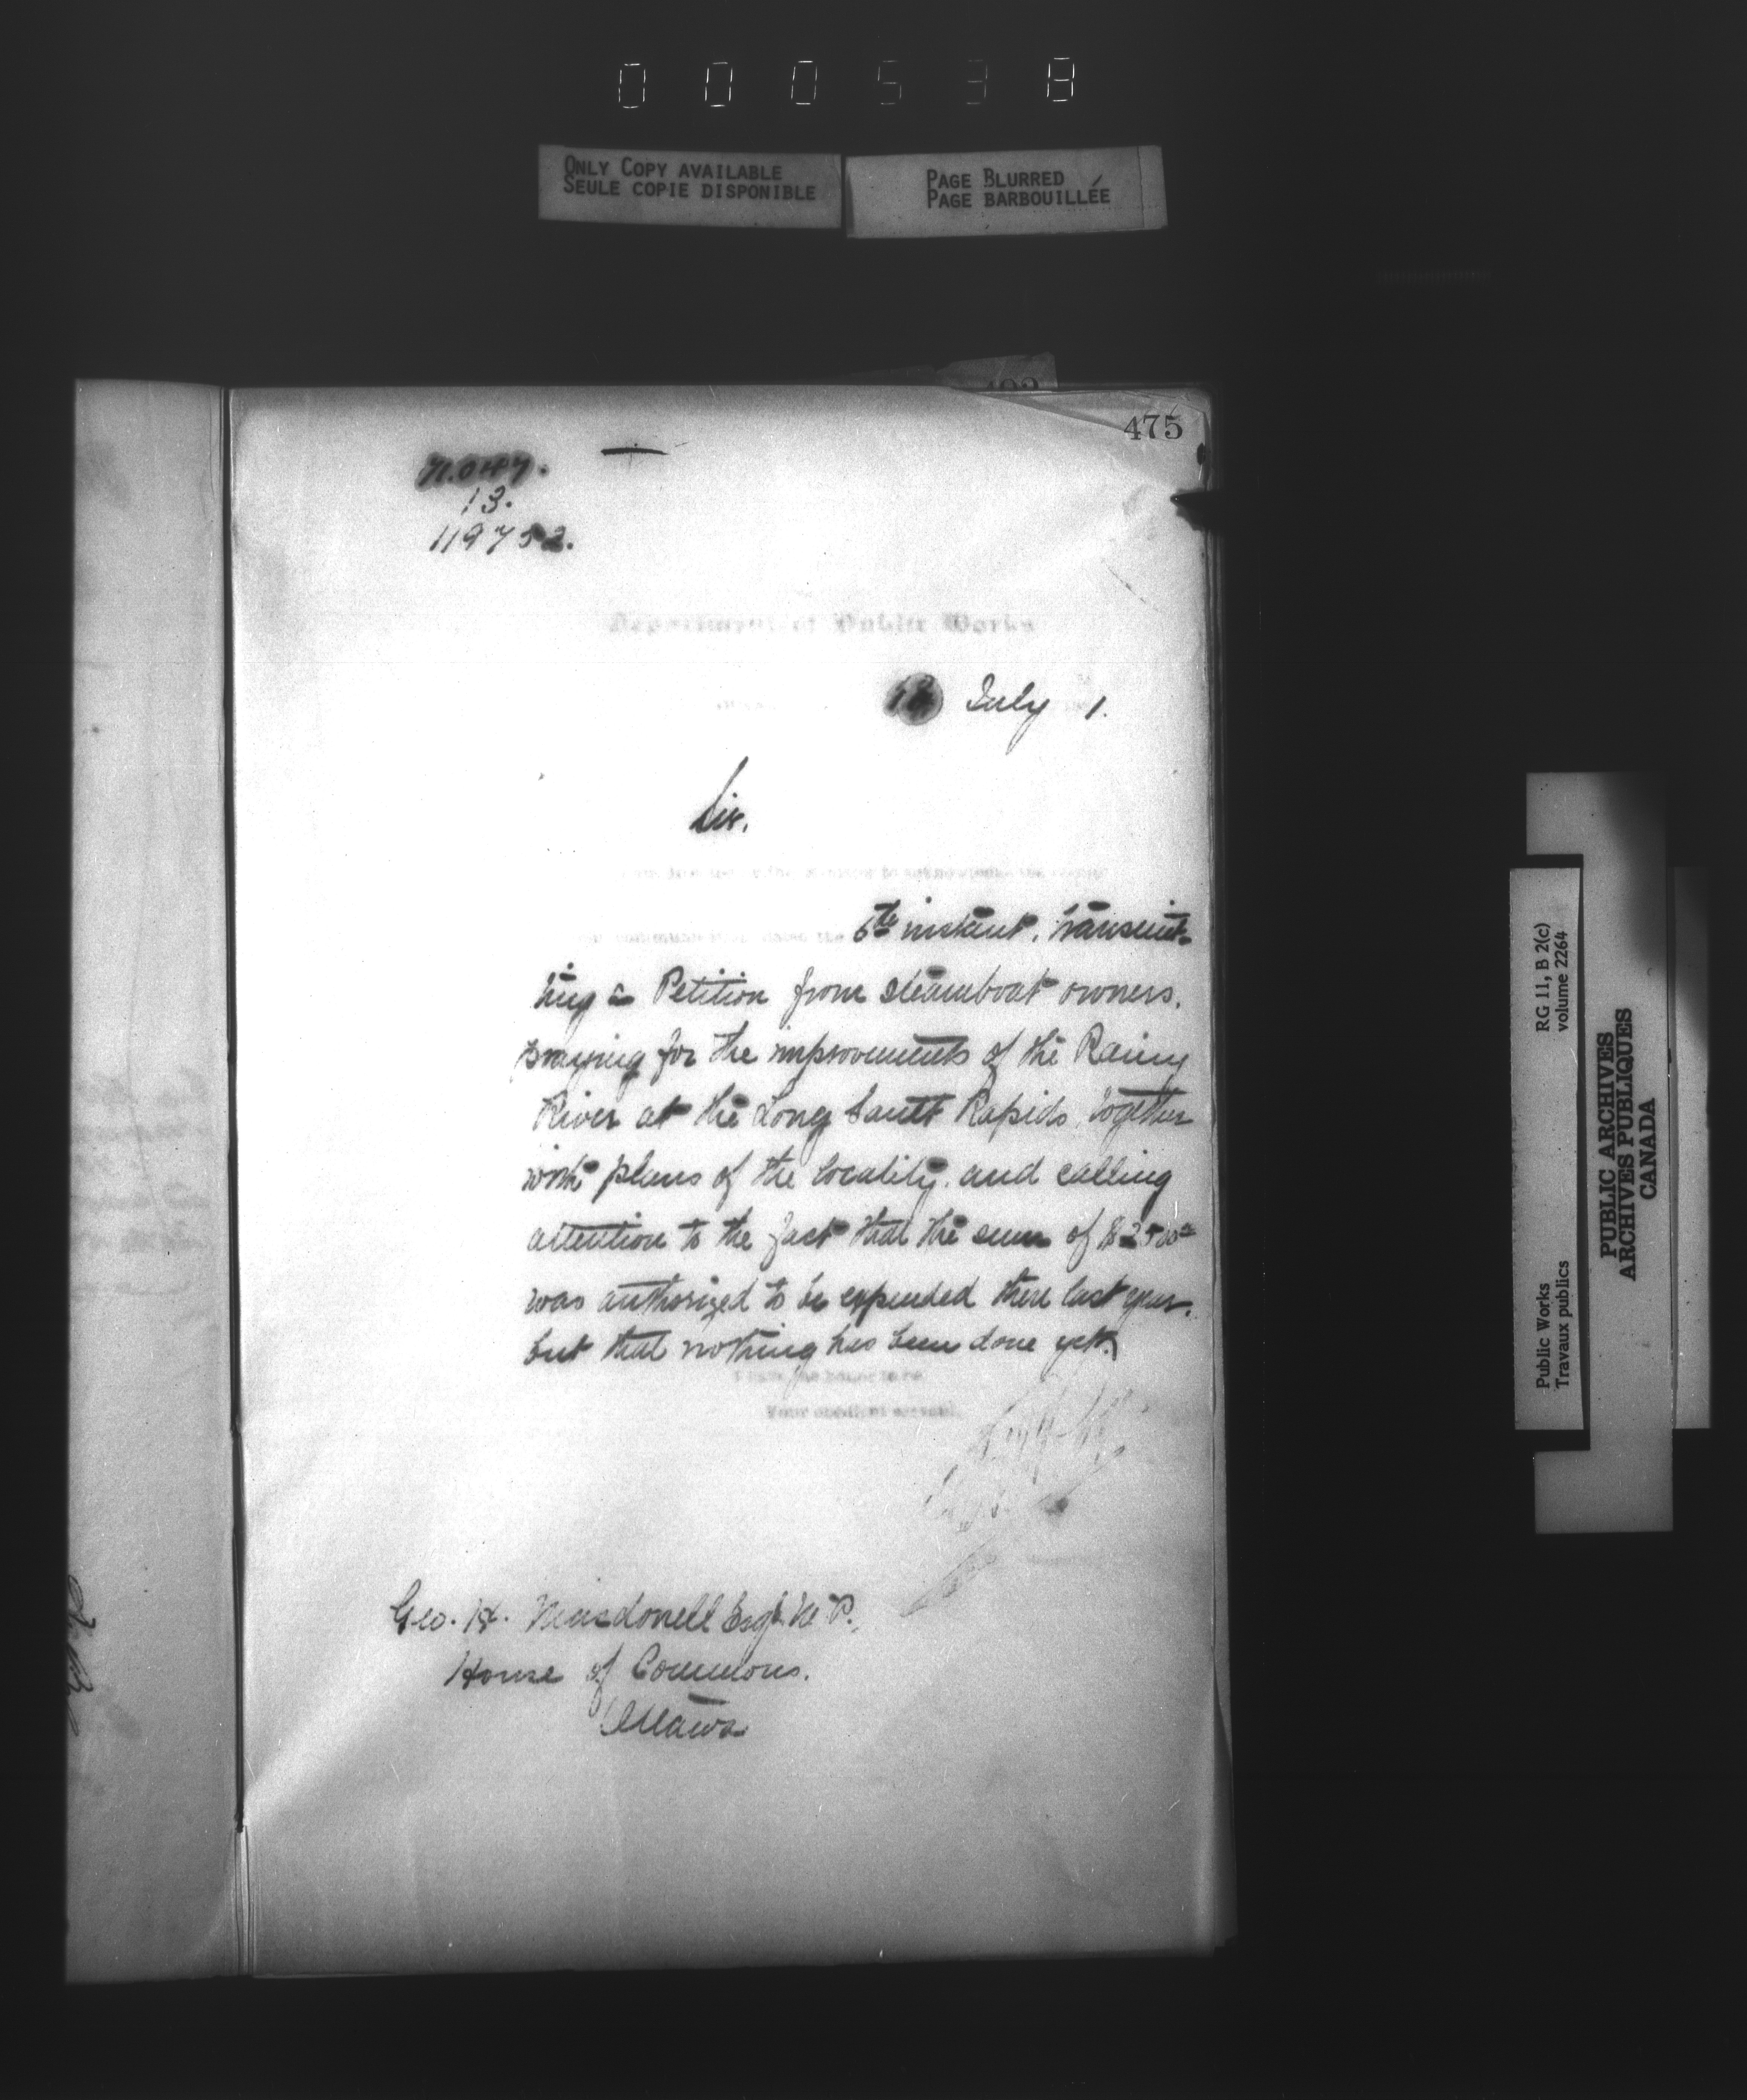 000538
ONLY COPY AVAILABLE
SEULE COPIE DISPONIBLE
PAGE BLURRED
PAGE BARBOUILLÉE
475
13.
119752.
Department of Public Works
July 1.
Sir,
6th instant, transmit-
ting a Petition from steamboat owners,
praying for the improvements of the Rainy
River at the Long Sault Rapids, together
with plans of the locality, and calling
attention to the fact that the sum of $2500
was authorized to be expended there last year,
but that nothing has been done yet.
I have the honor to be
Your obedient servant,
Geo. H. Macdonell Esq. M.P.,
House of Commons.
Ottawa
Public Works
Travaux publics
RG 11, B 2(c)
volume 2264
PUBLIC ARCHIVES
ARCHIVES PUBLIQUES
CANADA